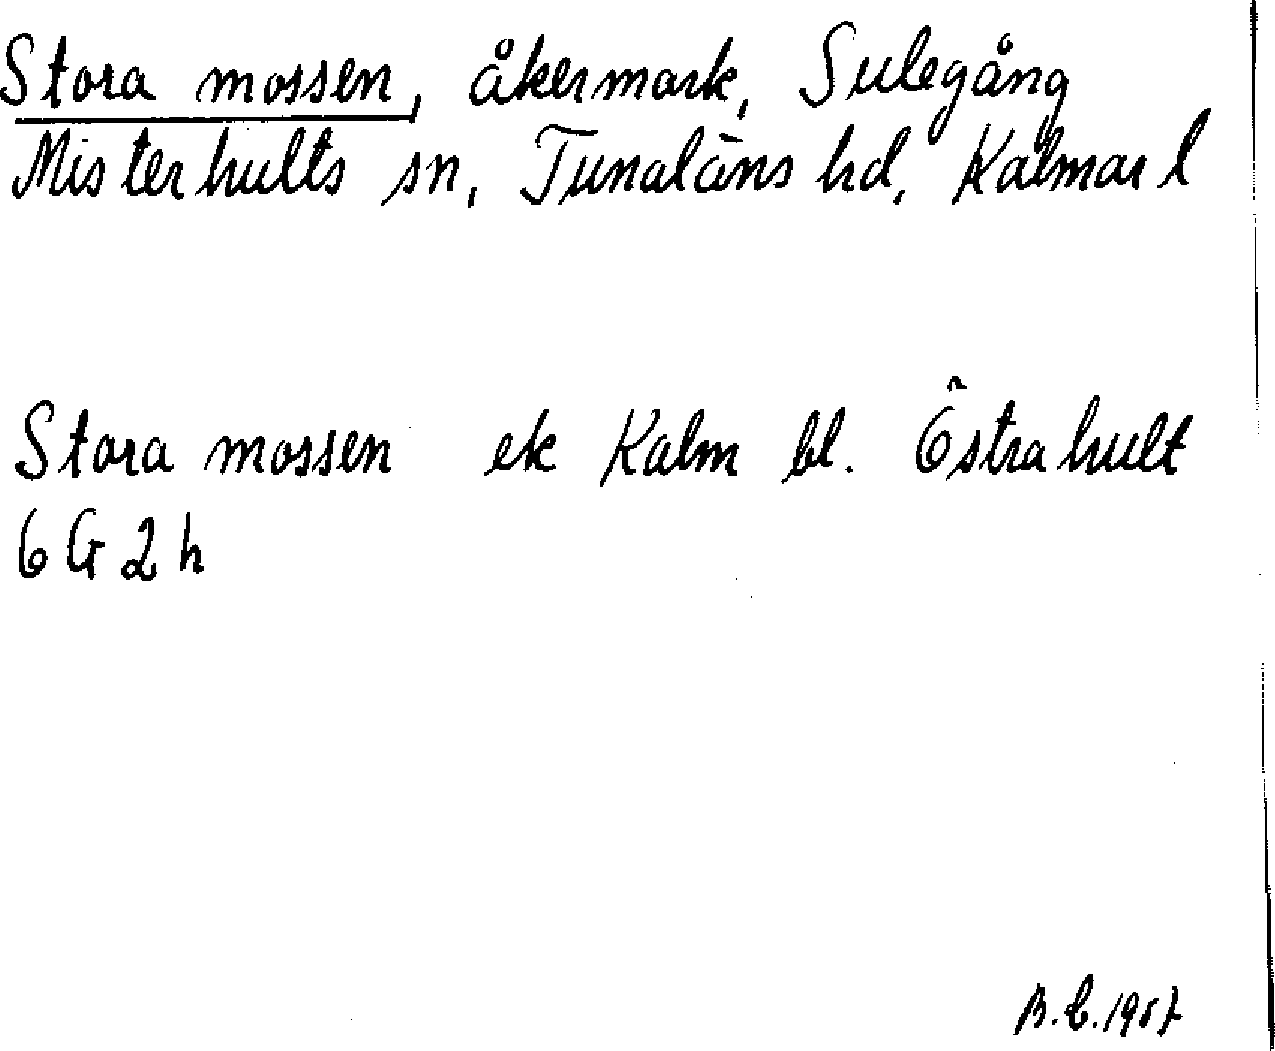 Stora mossen, åkermark, Sulegång
Misterhults sn, Tunaläns hd, Kalmar l
Stora mossen ek Kalm bl. Östrahult
6 G 2 h
B.C.